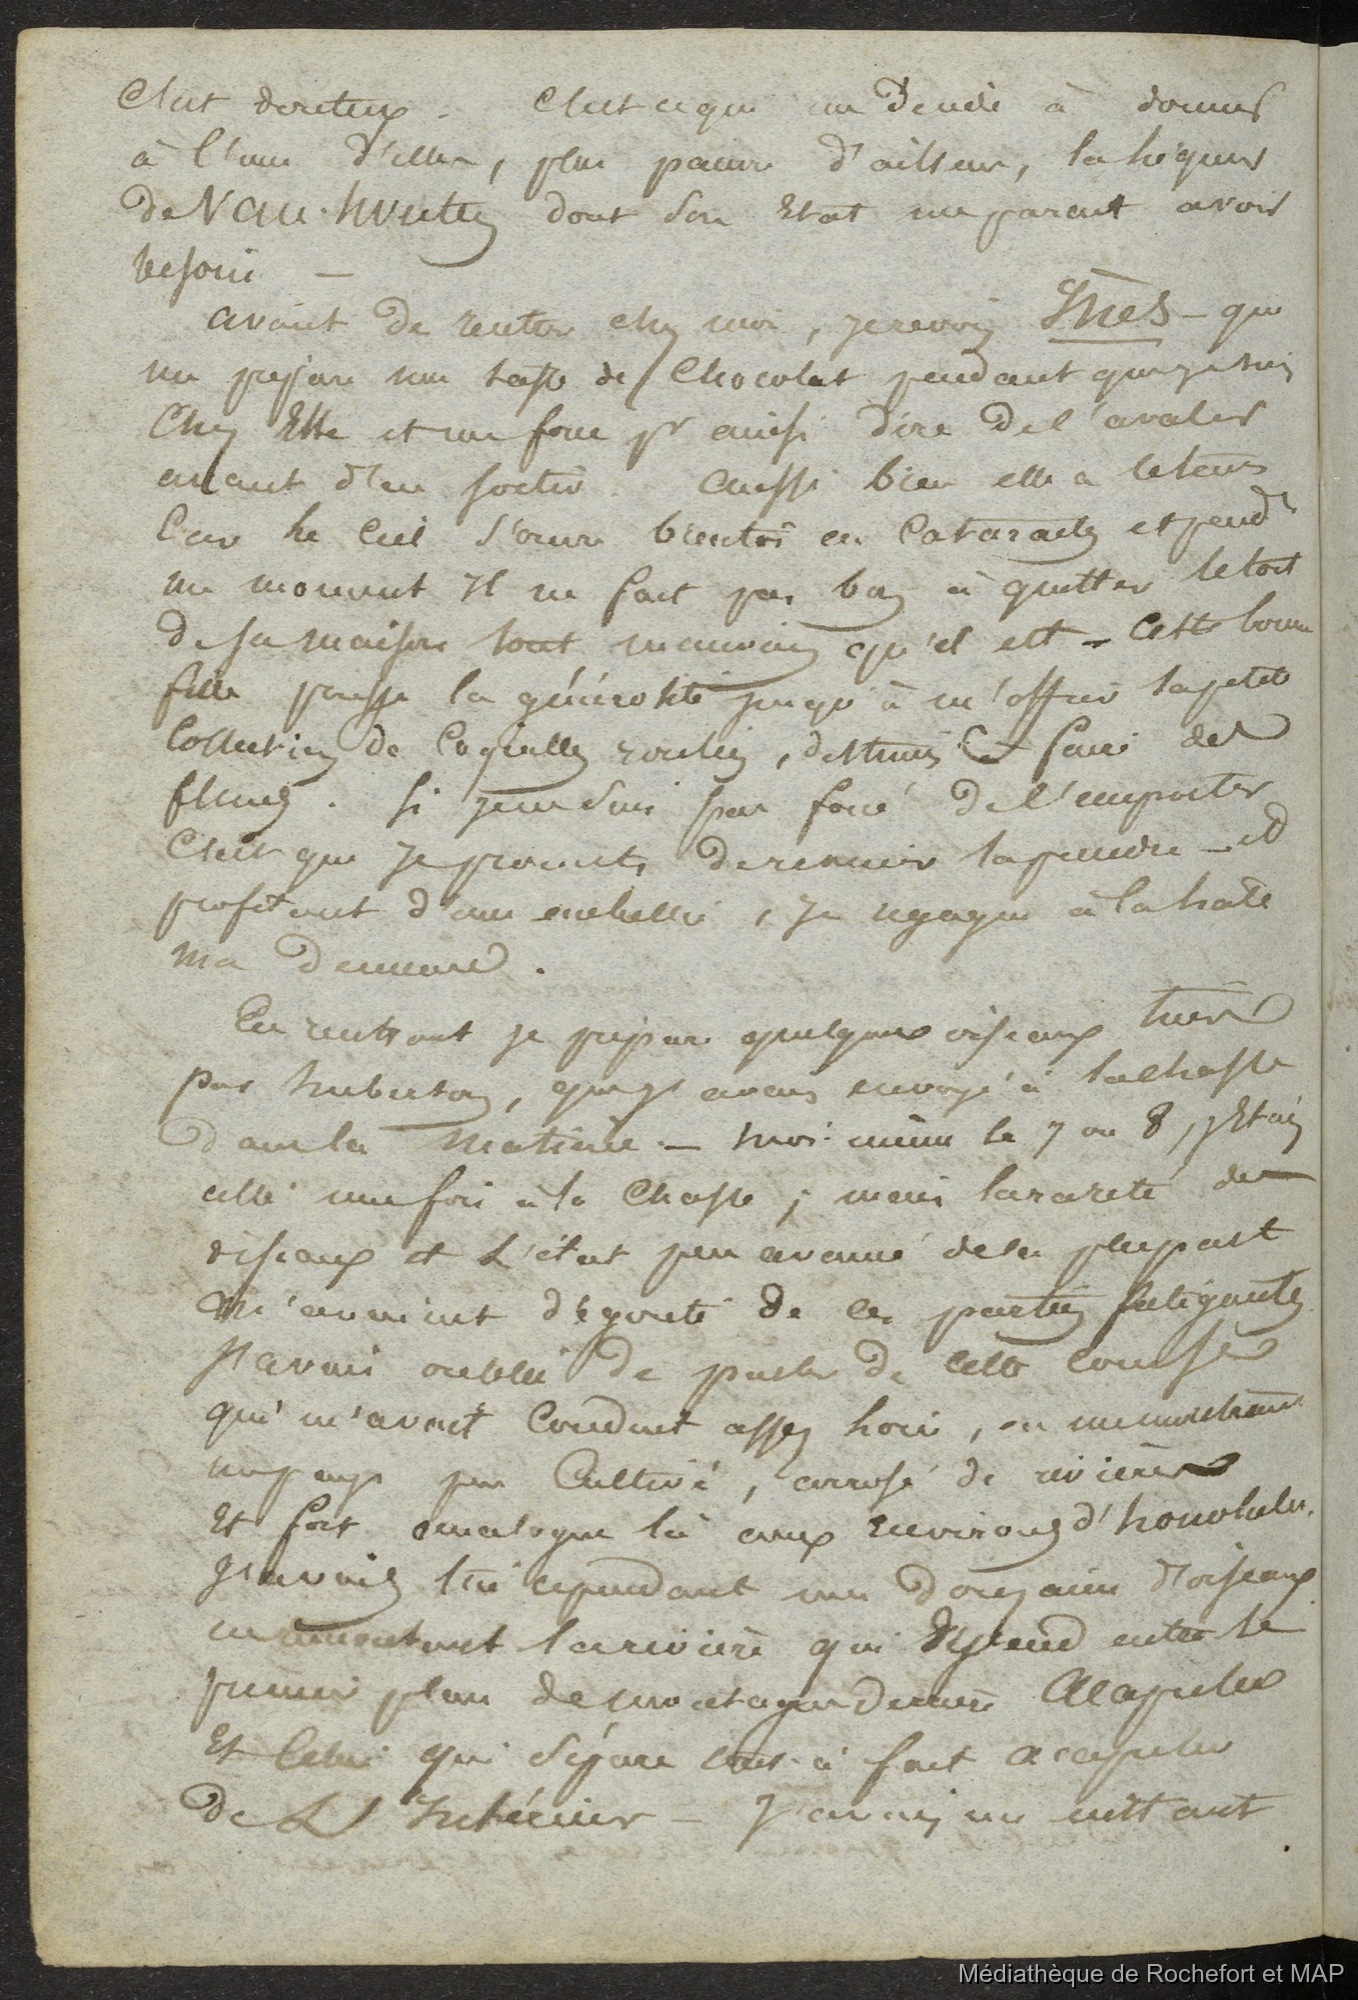 C'est douteux. C'est ce qui me décide à donner
à l'une d'elles, plus pauvre d'ailleurs, la liqueur
de Van-Swieten dont son Etat me parait avoir
besoin —
avant de rentrer chez moi, je revois Inès - qui
me prépare une tasse de Chocolat pendant que je suis
Chez Elle et me force pr ainsi dire de l'avaler
avant d'en sortir. Aussi bien elle a le tems
Car le Ciel s'ouvre bientôt en Cataractes et pendt
un moment il ne fait pas bon à quitter le toit
de sa maison tout mauvais qu'il est - Cette bonne
fille pousse la générosité jusqu'à m'offrir sa petite
Collection de Coquilles roulées, destinées à faire des
fleurs. Si je ne suis pas forcé de l'emporter
C'est que je promets de revenir la prendre - et
profitant d'une embellie, je regagne à la hâte
ma demeure.
En rentrant je prépare quelques oiseaux tués
par huberson, que j'avais envoyé à la chasse
dans la matinée. — moi-même le 7 ou 8, j'Etais
allé une fois à la Chasse; mais la rareté des
oiseaux et L'état peu avancé de la plupart
m'avaient dégouté de ces parties fatigantes
J'avais oublié de parler de cette course
qui m'avait Conduit assez loin, en me montrant
un pays peu Cultivé, arrosé de rivières
Et fort analogue là aux environs d'honolulu.
J'avais tué cependant une douzaine d'oiseaux
en remontant la rivière qui descend entre le
premier plan de montagnes derrière Acapulco
Et Celui qui sépare tout-à fait Acapulco
de L'Intérieur — J'avais en mettant